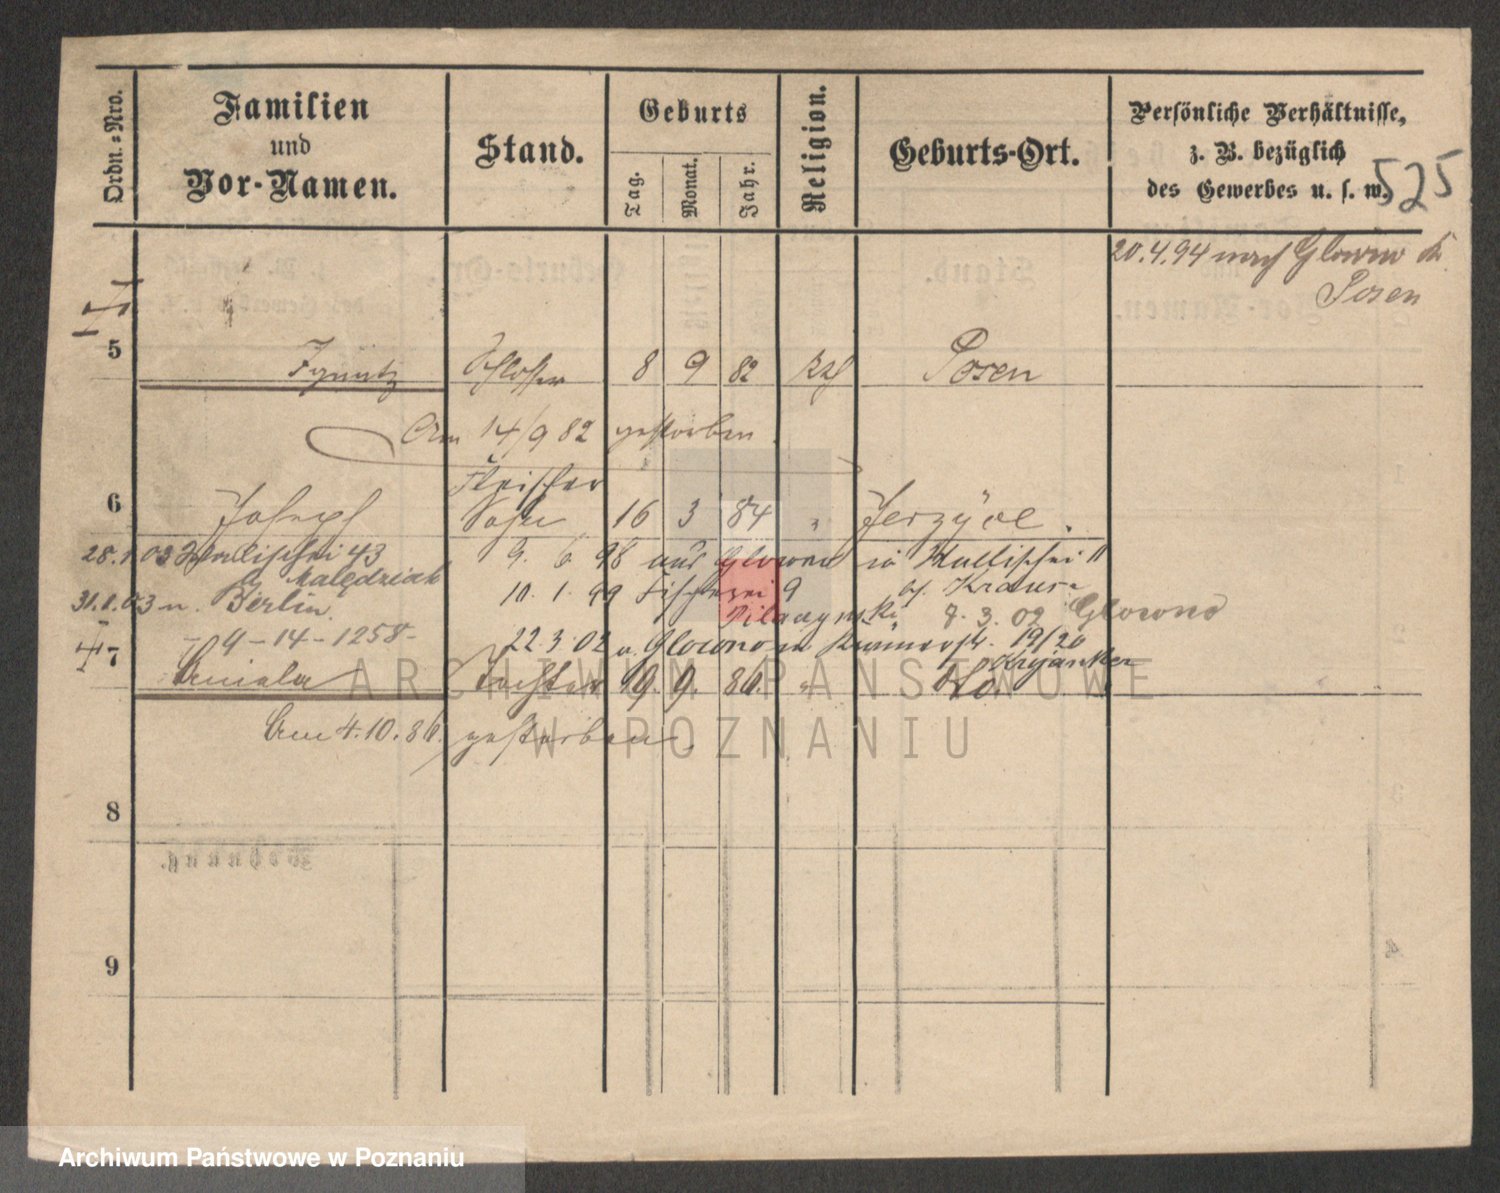 Ordn.=Nro.
Familien
und
Vor-Namen.
Stand.
Geburts
Tag.
Monat.
Jahr.
Religion.
Geburts-Ort.
Persönliche Verhältnisse,
z. B. bezüglich
des Gewerbes u. s. w.
525
20.4.94 nach Glowno Kr.
Posen
5
Ignatz Schlosser 8 9 82 kth Posen
Am 14/9 82 gestorben.
6
Joseph
Fleischer
Sohn 16 3 84 " Jerzyce.
28.1.03 Wallischei 43
b. Malędziak
9. 6. 98 aus Glowno in Wallischei 11
bf. Krause
31.1.03 n. Berlin.
10. 1. 99 Fischerei 9
Pilaczynski 7. 3. 02 Glowno
- 9 - 14 - 1258 -
22.3.02 v. Glowno in 19/20
7
Aniela Tochter 19. 9. 86. "
Am 4.10.86. gestorben.
8
9
ARCHIWUM PAŃSTWOWE
W POZNANIU
Archiwum Państwowe w Poznaniu